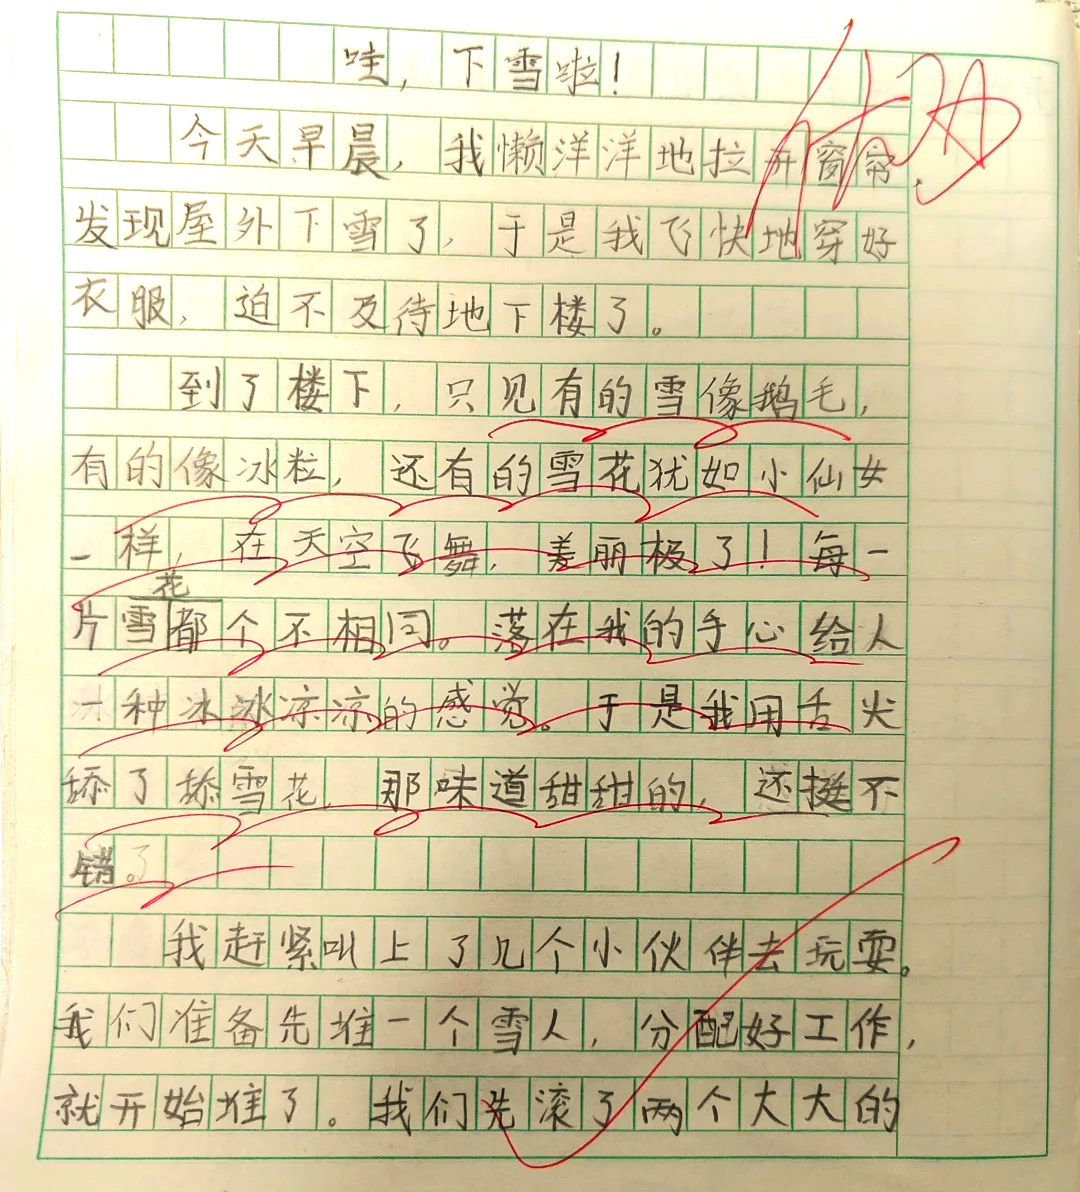 哇，下雪啦！
今天早晨，我懒洋洋地拉开窗帘，
发现屋外下雪了，于是我飞快地穿好
衣服，迫不及待地下楼了。
到了楼下，只见有的雪像鹅毛，
有的像冰粒，还有的雪花犹如小仙女
一样，在天空飞舞，美丽极了！每一
片雪花都个不相同。落在我的手心给人
一种冰冰凉凉的感觉。于是我用舌尖
舔了舔雪花，那味道甜甜的，还挺不
错。
我赶紧叫上了几个小伙伴去玩耍。
我们准备先堆一个雪人，分配好工作，
就开始堆了。我们先滚了两个大大的